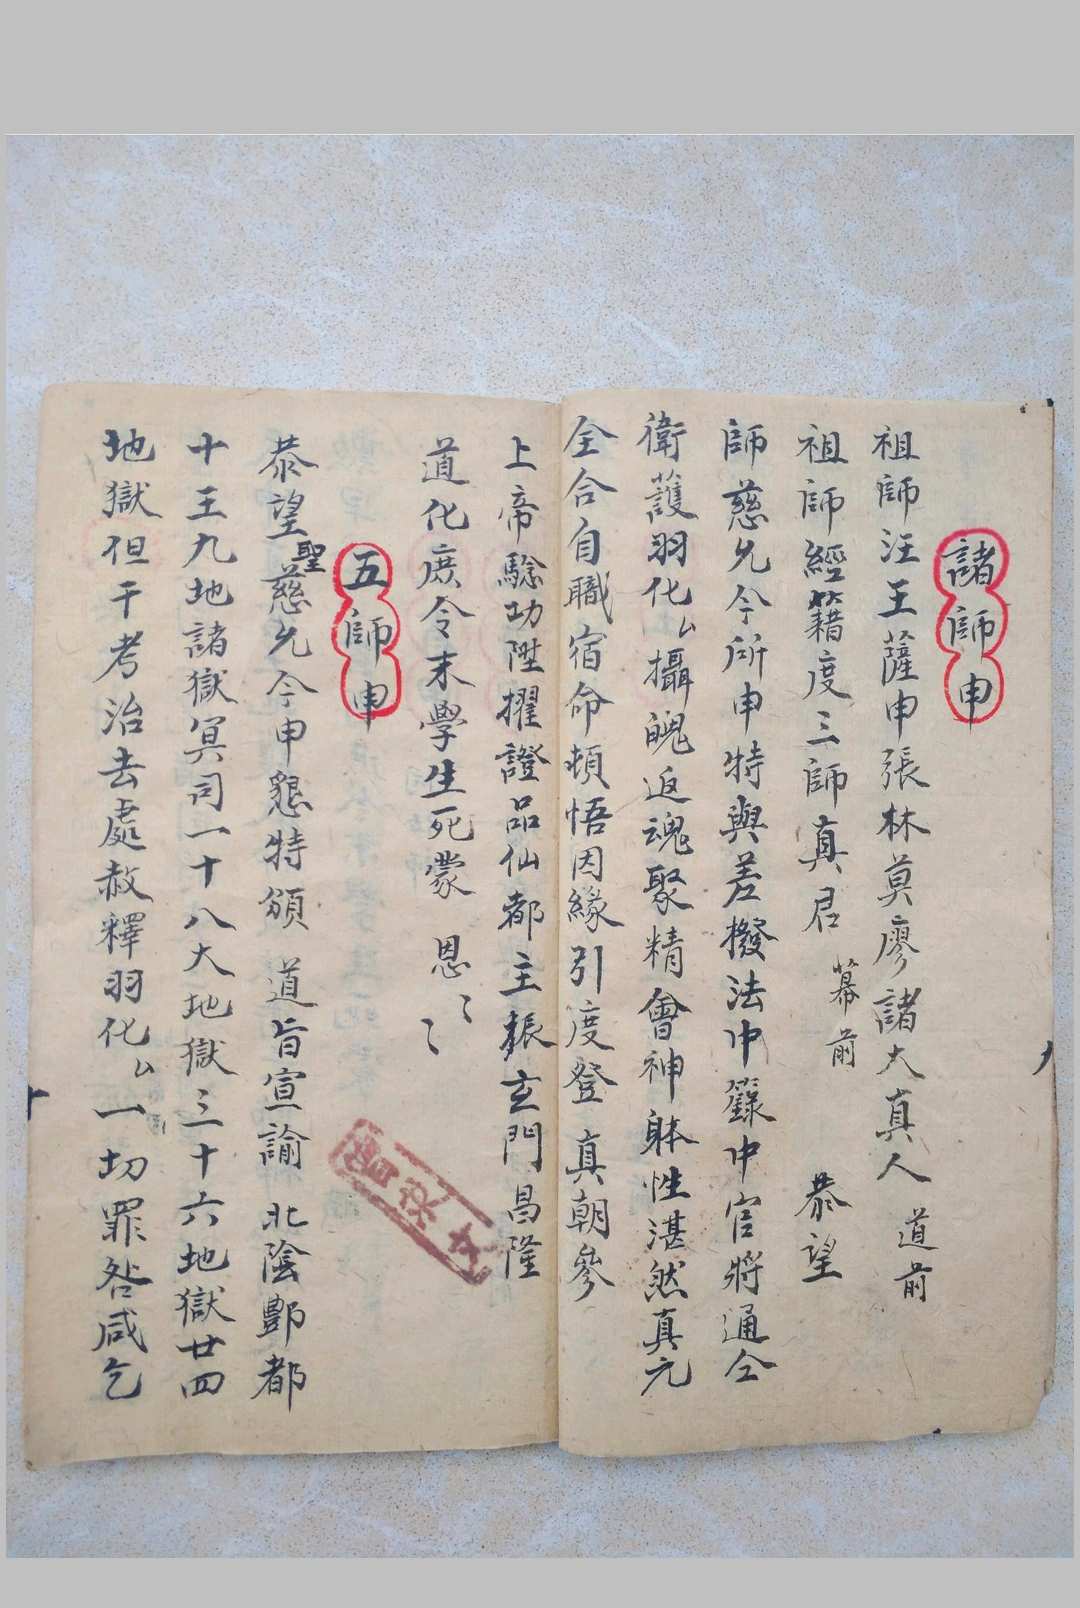 諸師申
祖師汪王薩申張林莫廖諸大真人 道前
祖師經籍度三師真君 幕前 恭望
師慈允今所申特與差撥法中籙中官將通仝
衛護羽化厶攝魄返魂聚精會神躰性湛然真元
全合自職宿命頓悟因緣引度登 真朝參
上帝騐功陞擢證品仙都主振玄門昌隆
道化庶令末學生死蒙 恩〻〻
五師申
恭望聖慈允今申懇特頒 道旨宣諭 北陰酆都
十王九地諸獄冥司一十八大地獄三十六地獄廿四
地獄但干考治去處赦釋羽化厶一切罪咎咸乞